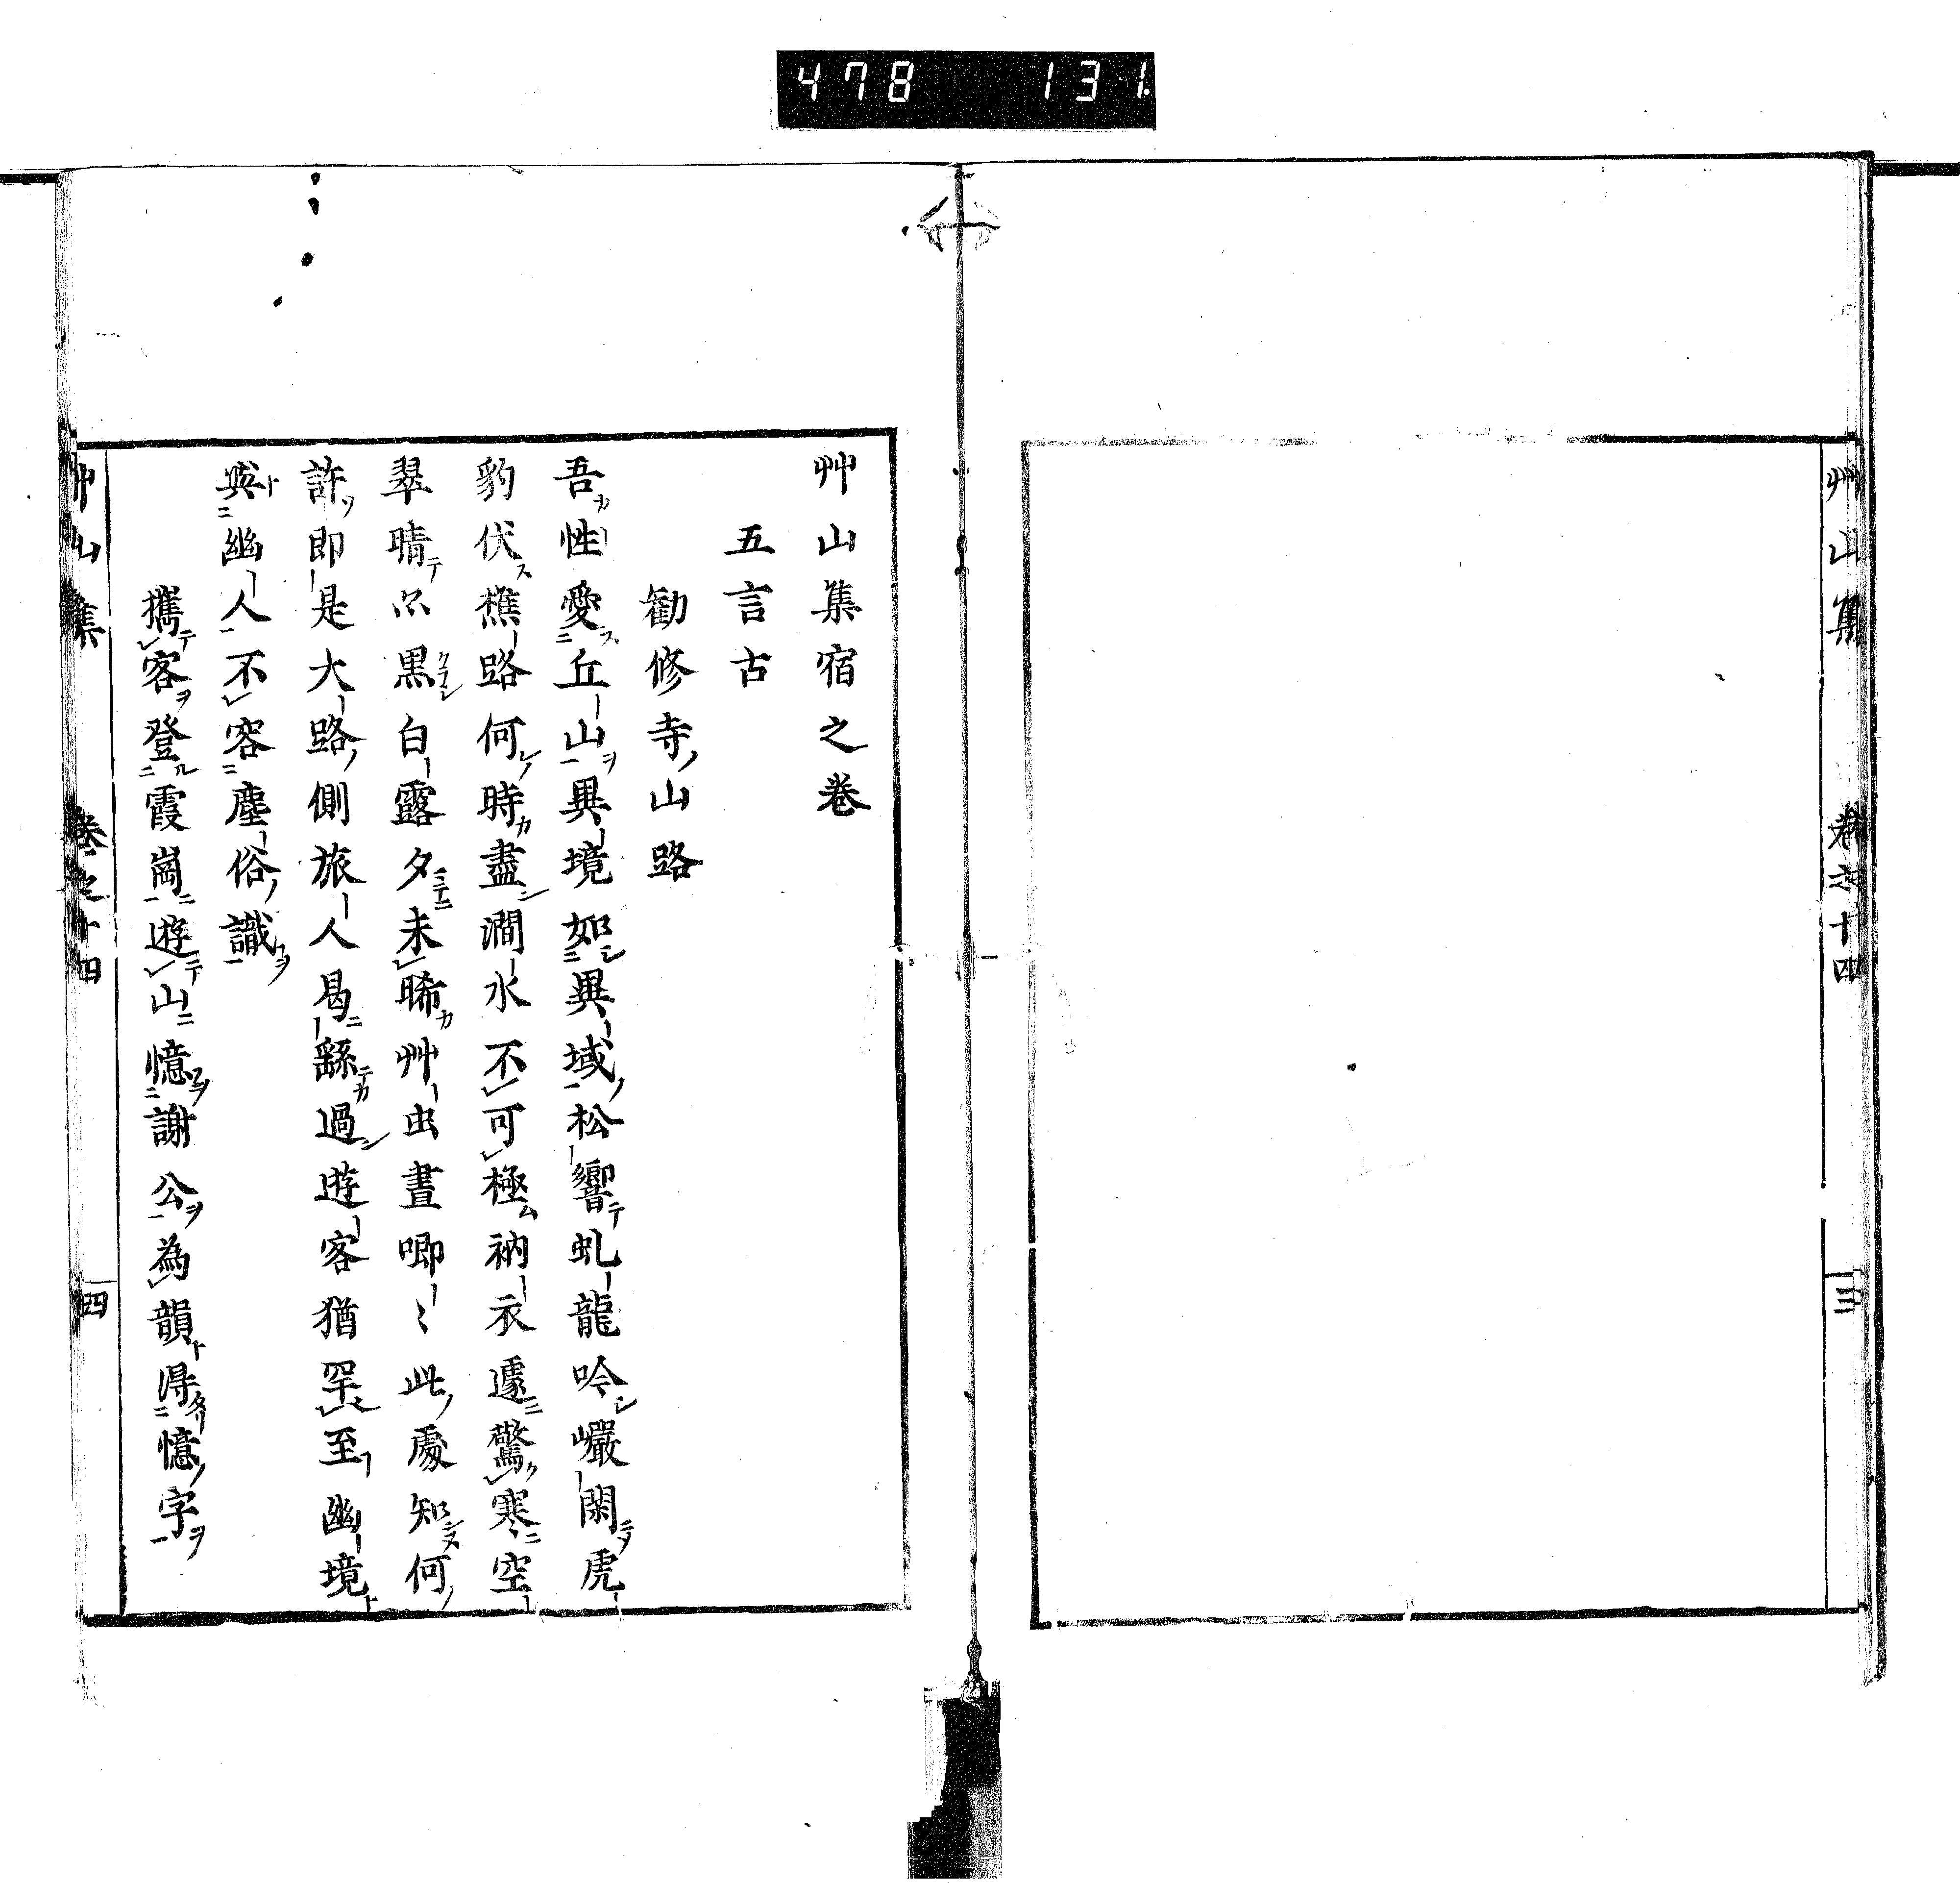 478 131
艸山集 卷之十四 三
艸山集宿之卷
五言古
勸修寺山路
吾性愛丘山異境如異域松響虬龍吟巖閑虎
豹伏樵路何時盡澗水不可極衲衣遽驚寒空
翠晴亦黑白露夕未晞艸虫晝唧〻此處知何
許即是大路側旅人曷繇過遊客猶罕至幽境
與幽人不容塵俗識
攜客登霞崗遊山憶謝公為韻得憶字
艸山集 卷之十四 四